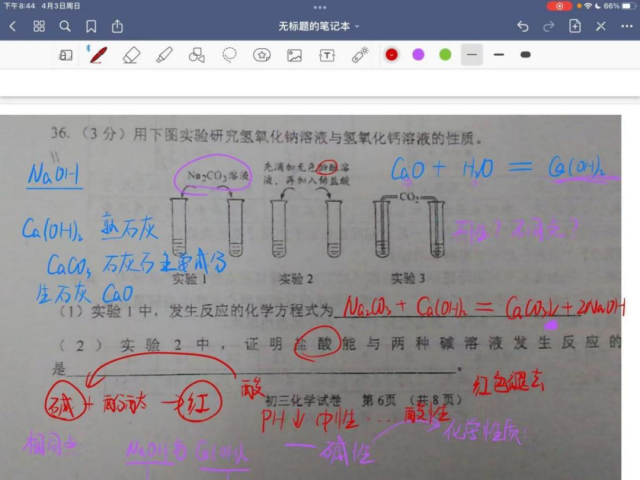 下午8:44 4月3日周日
66%
无标题的笔记本
36.（3分）用下图实验研究氢氧化钠溶液与氢氧化钙溶液的性质。
NaOH
Na₂CO₃溶液
先滴加无色酚酞溶
液，再加入稀盐酸
CO₂
CaO + H₂O = Ca(OH)₂
Ca(OH)₂ 熟石灰
CaCO₃ 石灰石主要成分
生石灰 CaO
实验1 实验2 实验3
（1）实验1中，发生反应的化学方程式为
Na₂CO₃ + Ca(OH)₂ = CaCO₃↓ + 2NaOH
（2）实验2中，证明盐酸能与两种碱溶液发生反应的
是 。
碱 + 酚酞 → 红
酸
红色褪去
初三化学试卷 第6页（共8页）
PH↓ 中性 … 酸性
相同点
NaOH Ca(OH)₂ — 碱性 化学性质：